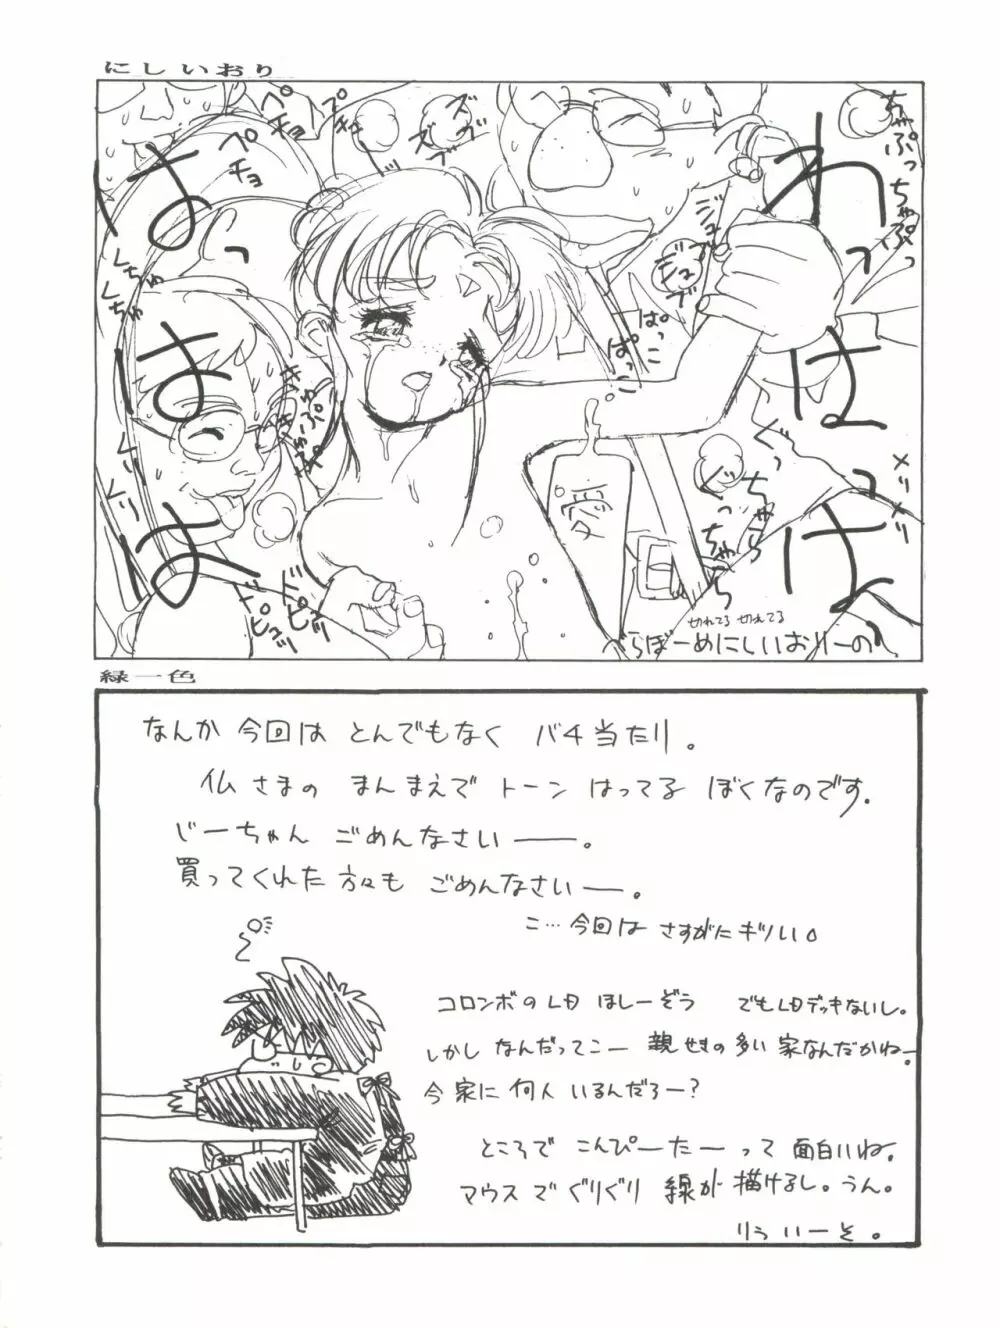 にしいおり
ペチョ
ペチョ
プチュッ
ズブ
ズズ
ちゃぷっちゃぷっ
わっはっはっ
はっはっは
ジュブ
ジュブ
ぱっこ
ぱっこ
くちゅ
くちゅ
くりくり
ぐっちゃら
ぐっちゃら
メリメリ
愛
ドピュッ
ドピュッ
切れてる 切れてる
べらぼーめにしいおりーの
緑一色
なんか 今回は とんでもなく バチ当たり。
仏さまの まんまえで トーン はってる ぼくなのです。
じーちゃん ごめんなさいー。
買ってくれた 方々も ごめんなさいー。
こ…今回は さすがに キツい。
コロンボの LD ほしーぞう でも LDデッキないし。
しかし なんだってこー 親せきの 多い 家なんだかねー
今 家に 何人 いるんだろー?
ところで こんぴーたー って 面白いね。
マウスで ぐりぐり 線が 描けるし。うん。
りゅういーそ。